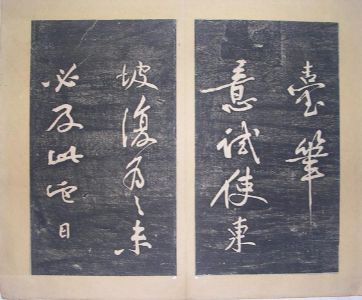 臺筆
意試使東
坡復為之未
必及此它日